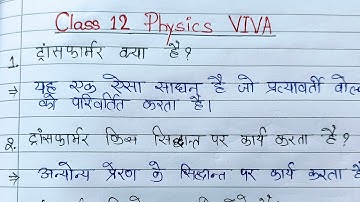 Class 12 Physics VIVA
1. ट्रांसफार्मर क्या है?
→ यह एक ऐसा साधन है जो प्रत्यावर्ती
को परिवर्तित करता है।
2. ट्रांसफार्मर किस सिद्धान्त पर कार्य करता है?
→ अन्योन्य प्रेरण के सिद्धान्त पर कार्य करता है